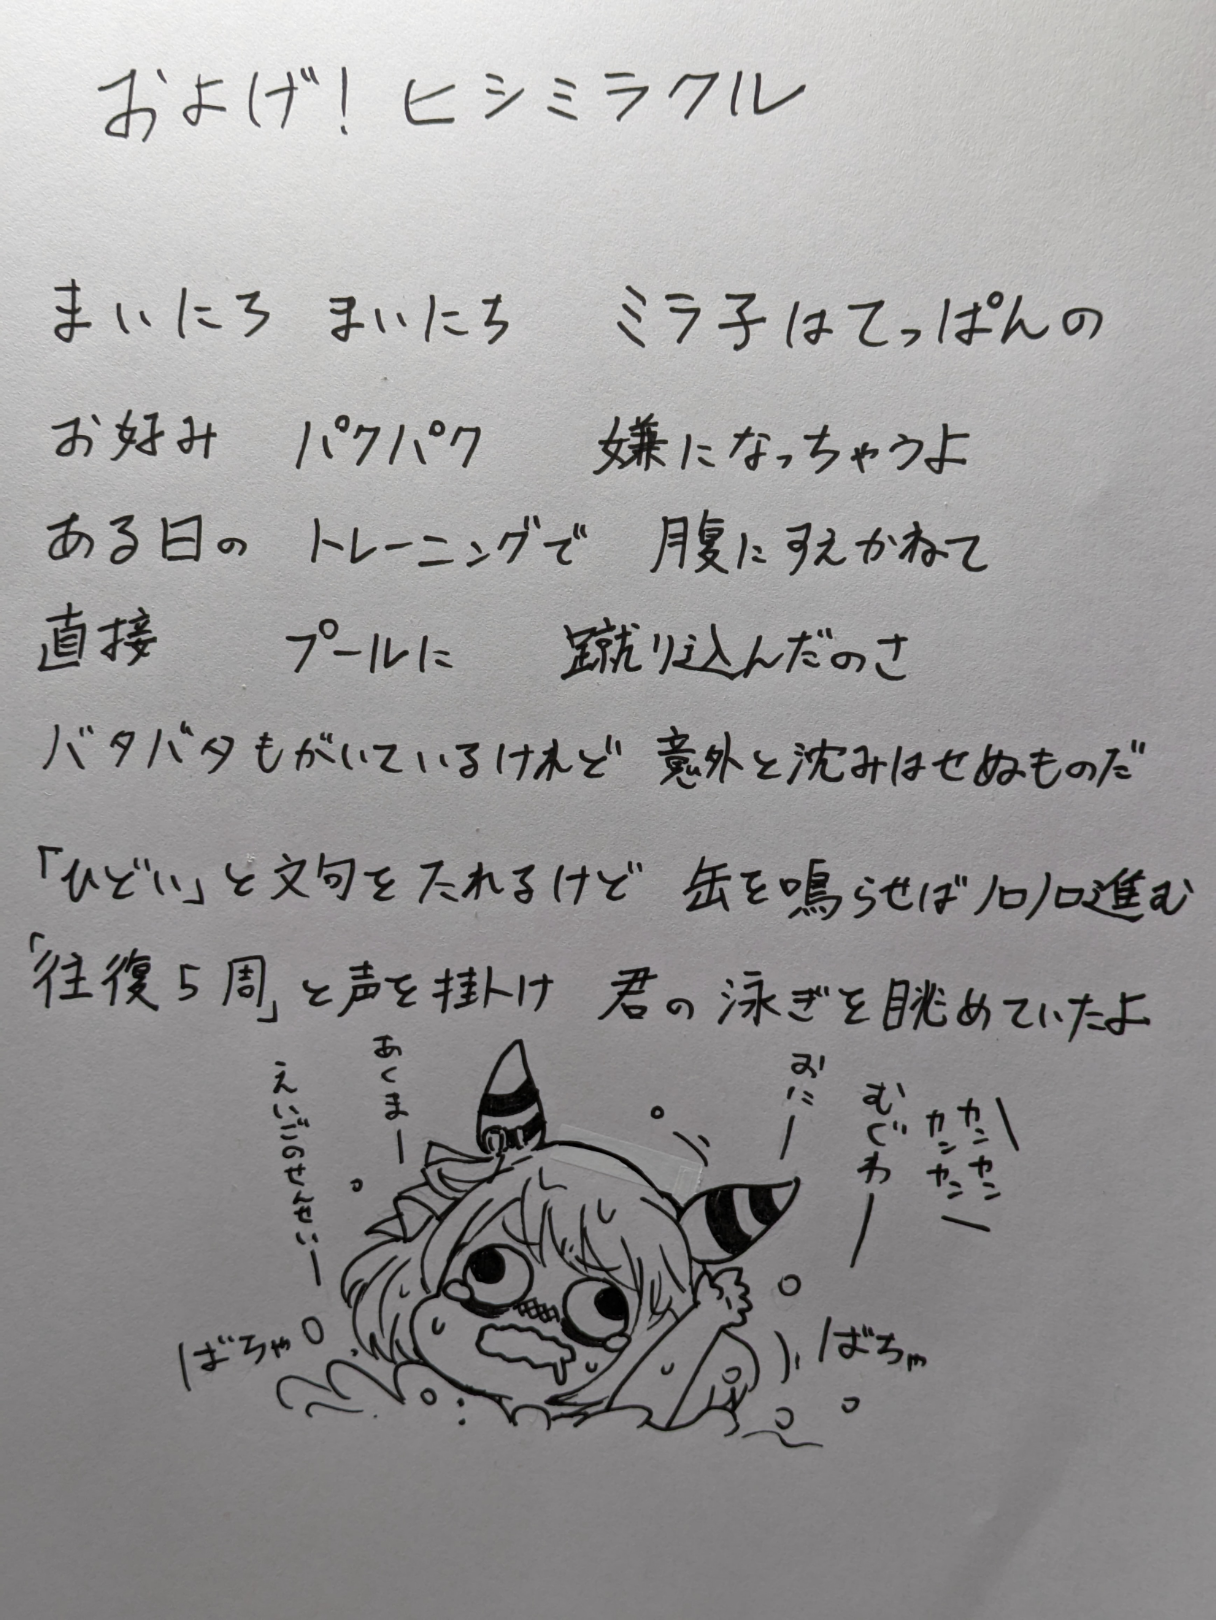 およげ！ヒシミラクル
まいにち まいにち ミラ子はてっぱんの
お好み パクパク 嫌になっちゃうよ
ある日の トレーニングで 腹にすえかねて
直接 プールに 蹴り込んだのさ
バタバタもがいているけれど 意外と沈みはせぬものだ
「ひどい」と文句をたれるけど 缶を鳴らせばノロノロ進む
「往復5周」と声を掛け 君の泳ぎを眺めていたよ
えいごのせんせいー
あくまー
おにー
むぐわー
カンカン
カンカン
ばちゃ
ばちゃ